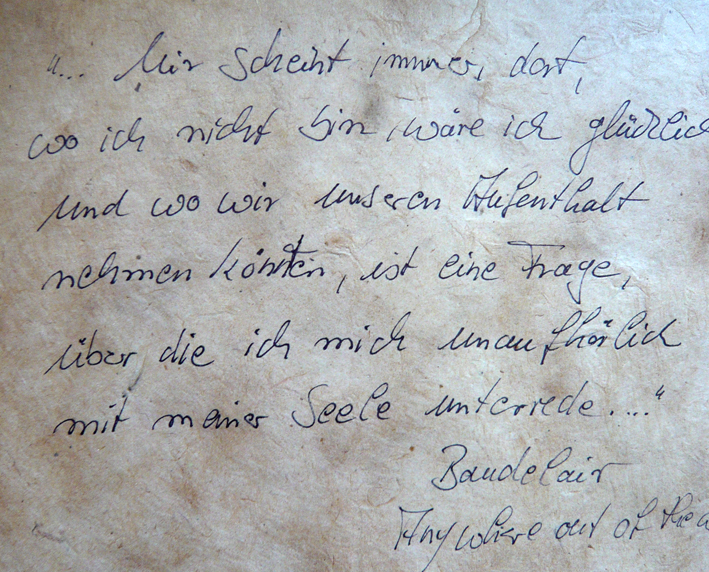 "... Mir scheint immer, dort,
wo ich nicht bin, wäre ich glücklich
und wo wir unseren Aufenthalt
nehmen könnten, ist eine Frage,
über die ich mich unaufhörlich
mit meiner Seele unterrede...."
Baudelair
Anywhere out of the w